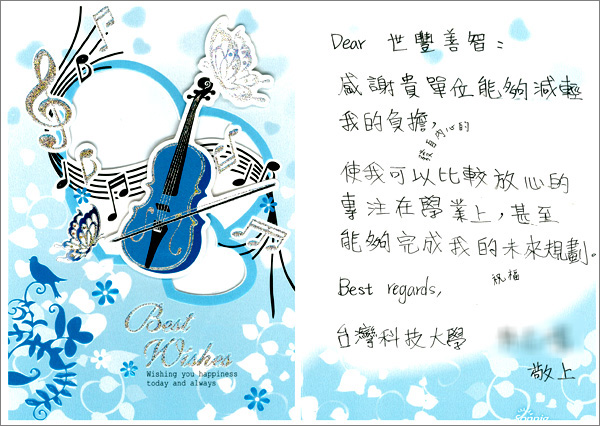 Best
Wishes
Wishing you happiness
today and always
Dear 世豐善智：
感謝貴單位能夠減輕
我的負擔，
發自內心的
使我可以比較放心的
專注在學業上，甚至
能夠完成我的未來規劃。
祝福
Best regards,
台灣科技大學
敬上